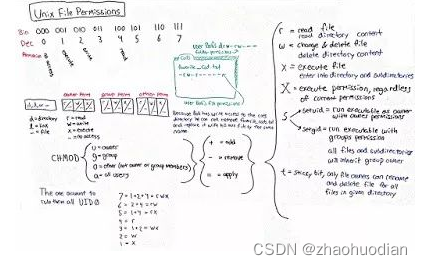 Unix File Permissions
Bin 000 001 010 011 100 101 110 111
Dec 0 1 2 3 4 5 6 7
no access
execute
write
read
r = read file
read directory content
w = change & delete file
delete directory content
x = execute file
enter into directory and subdirectories
X = execute permission, regardless
of current permissions
s
setuid = run executable as owner
with owner permissions
setgid = run executable with
groups permission
all files and subdirectories
will inherit group owner
t = sticky bit, only file owners can rename
and delete file for all
files in given directory
owner perm group perm other perm
d = directory
l = link
- = file
r = read
w = write
x = execute
- = no access
Because Bob has write access to the cats
directory he can
replace it with
name
CHMOD
u = owner
g = group
o = other (not owner or group members)
a = all users
+ = add
- = remove
= = apply
The one account to
rule them all UID 0
7 = 1+2+4 = rwx
6 = 2+4 = rw
5 = 1+4 = rx
4 = r
3 = 1+2 = wx
2 = w
1 = x
CSDN @zhaohuodian